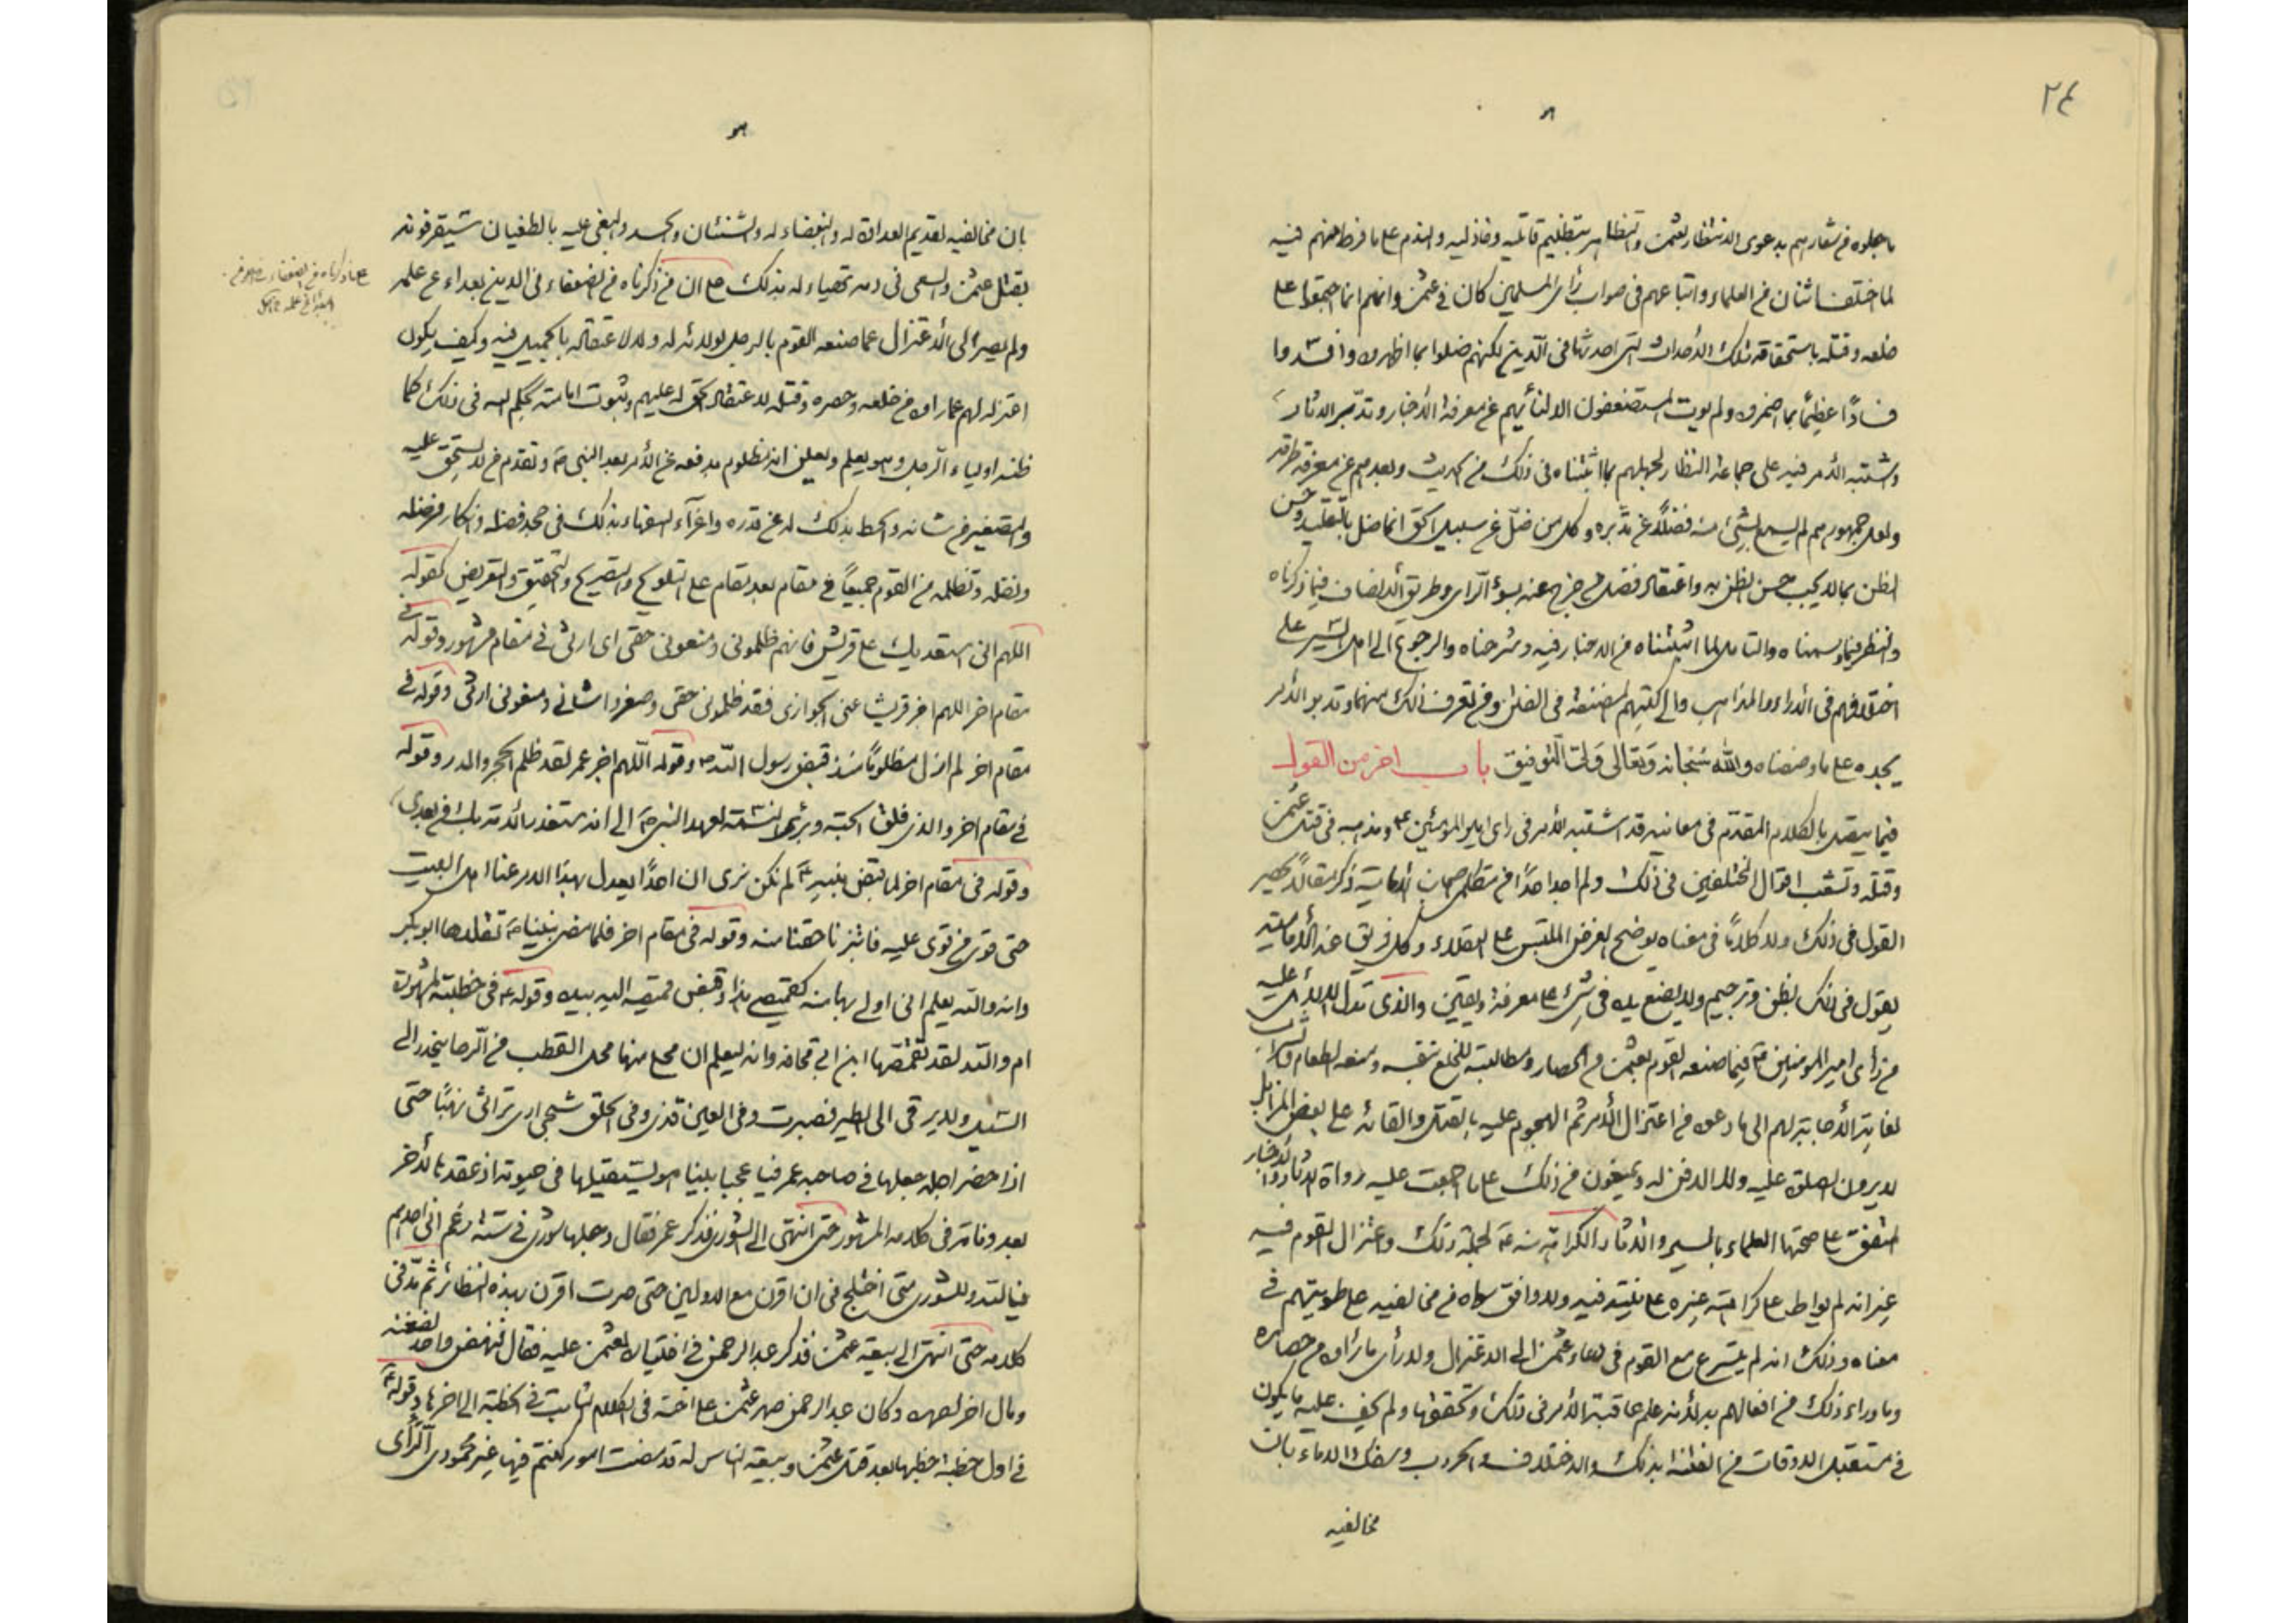 ٢٤
ما جعلوه في شعارهم بدعوى الانتظار لعثمن والتظاهر بتظليم قاتليه وخاذليه والندم على ما فرط منهم فيه
لما اختلف اثنان من العلماء واتباعهم في صواب رأي المسلمين كان في عثمن وانهم انما اجتمعوا على
خلعه وقتله باستحقاقه تلك الأحداث التي احدثها في الدين لكنهم ضلوا بما اظهروه وافسدوا
فسادًا عظيمًا بما اضمروه ولم يؤت المستضعفون الا لنأيهم عن معرفة الأخبار وتدبر الاثار
واشتبه الأمر فيه على جماعة النظار لجهلهم بما اثبتناه في ذلك من الحديث وبعدهم عن معرفة طرقه
ولعل جمهورهم لم يسمع بشئ منه فضلًا عن تدبره وكل من ضل عن سبيل الحق انما ضل بالتقليد وحسن
الظن بما لا يجب حسن الظن به واعتقاد فضل من خرج عنه بسوء الرأي وطريق الانصاف فيما ذكرناه
والنظر فيما وسمناه والتأمل لما اثبتناه من الاخبار فيه وشرحناه والرجوع الى اهل السير على
اختلافهم في الاراء والمذاهب والى كتبهم المصنفة في الفتن وفي تعرف ذلك منها وتدبر الأمر
يجده على ما وصفناه والله سُبحانه وَتعَالى وَلى التّوفيق باب اخر من القول
فيما يتصل بالكلام المقدم في معانيه قد اشتبه الأمر في راى امير المؤمنين ع ومذهبه في فتنة عثمن
وقتله وتشعب اقوال المختلفين في ذلك ولم اجد احدًا من متكلمى اصحاب الامامية ذكر مقالًا يحصر
القول في ذلك ولا كلامًا في معناه يوضح الغرض الملتبس على العقلاء وكل فريق عند الأمامية
يقول في ذلك بظن وترجيم ولا يضع يده في شئ على معرفة ويقين والذى تدل الدلائل عليه
من رأى امير المؤمنين ع فيما صنعه القوم بعثمن من الحصار ومطالبته للخلع نفسه ومنعه الطعام والشراب
لغاية الأجابة لهم الى ما دعوه من اعتزال الأمر ثم الهجوم عليه بالقتل والقائه على بعض المزابل
لا يرون الصلوة عليه ولا الدفن له ويمنعون من ذلك على ما اجمعت عليه رواة الاثار والأخبار
اتفق على صحتها العلماء بالسير والاثار الكراهة منه ع لجملة ذلك واعتزال القوم فيه
غير انه لم يواط على كراهته غيره على نيته فيه ولا وافق سواه من مخالفيه على طويتهم في
معناه وذلك انه لم يتسرع مع القوم في دعاء عثمن الى الاعتزال ولا رأى ما رأوه من حصاره
وما وراء ذلك من افعالهم به لأنه علم عاقبة الأمر في ذلك وتحققها ولم يخف عليه ما يكون
في مستقبل الاوقات من الفتنة بذلك والاختلاف والحروب وسفك الدماء بان
مخالفيه
بان مخالفيه لقديم العداوة له والبغضاء له والشنئان والحسد والبغى عليه بالطغيان سيقرفونه
بقتل عثمن والسعى في دمه تحصياء له بذلك على ان من ذكرناه من الضعفاء في الدين بعداء عن علمه
ولم يصر الى الأعتزال عما صنعه القوم بالرجل لولائه له ولا لاعتقاله بالجميل فيه وكيف يكون
اعتزاله لهم عما راوه من خلعه وحصره وقتله لاعتقاد الحق له عليهم وثبوت امامته بحكم الله في ذلك كما
ظنه اولياء الرجل وهو يعلم ويعلن انه مظلوم بدفعه عن الأمر بعد النبى ص وتقدم من لا يستحق عليه
والتصغير من شانه والحط بذلك له عن قدره واغراء السفهاء بذلك في جحد فضله وانكار فرضه
ونقله وتظلمه من القوم جميعًا في مقام بعد مقام على التلويح والتصريح والتحقيق والتعريض كقوله
اللهم انى استعديك على قريش فانهم ظلمونى ومنعونى حقى اى ارثى في مقام مشهور وقوله في
مقام اخر اللهم اجز قريشا عنى الجوازى فقد ظلمونى حقى وصغروا شانى ومنعونى ارثى وقوله في
مقام اخر لم ازل مظلومًا منذ قبض رسول الله ص وقوله اللهم اجز عمر لقد ظلم الحجر والمدر وقوله
في مقام اخر والذى فلق الحبة وبرئ النسمة لعهد النبى ص الى ان الامة ستغدر بك من بعدى
وقوله في مقام اخر لما قبض نبيه ص لم نكن نرى ان احدًا يعدل بهذا الامر عنا اهل البيت
حتى قوى من قوى عليه فابتزنا حقنا منه وقوله في مقام اخر فلما مضى نبينا ص تقلدها ابو بكر
وانه والله يعلم انى اولى بها منه كقميصى هذا وقبض قميصه اليه بيده وقوله ع في خطبته المشهورة
ام والله لقد تقمصها ابن ابى قحافة وانه ليعلم ان محلى منها محل القطب من الرحا ينحدر الى
السيل ولا يرقى الى الطير فصبرت وفى العين قذى وفى الحلق شجى ارى تراثى نهبًا حتى
اذا حضر اجله جعلها في صاحبه عمر فيا عجبا بينا هو يستقيلها في حيوته اذ عقدها لأخر
بعد وفاته في كلامه المشهور حتى انتهى الى الشورى فذكر عمر فقال وجعلها شورى في ستة زعم انى احدهم
فيالله وللشورى متى اختلج في ان اقرن مع الاولين حتى صرت اقرن بهذه النظائر ثم مد في
كلامه حتى انتهى الى بيعة عثمن فذكر عبد الرحمن في اختياره لعثمن عليه فقال فنهض واحد لضغنه
ومال اخر لصهره وكان عبد الرحمن صهر عثمن على اخته في الكلام ثابت في الخطبة الى اخرها وقوله ع
في اول خطبة خطبها بعد قتل عثمن وبيعة الناس له قد مضت امور كنتم فيها غير محمودى الرأى